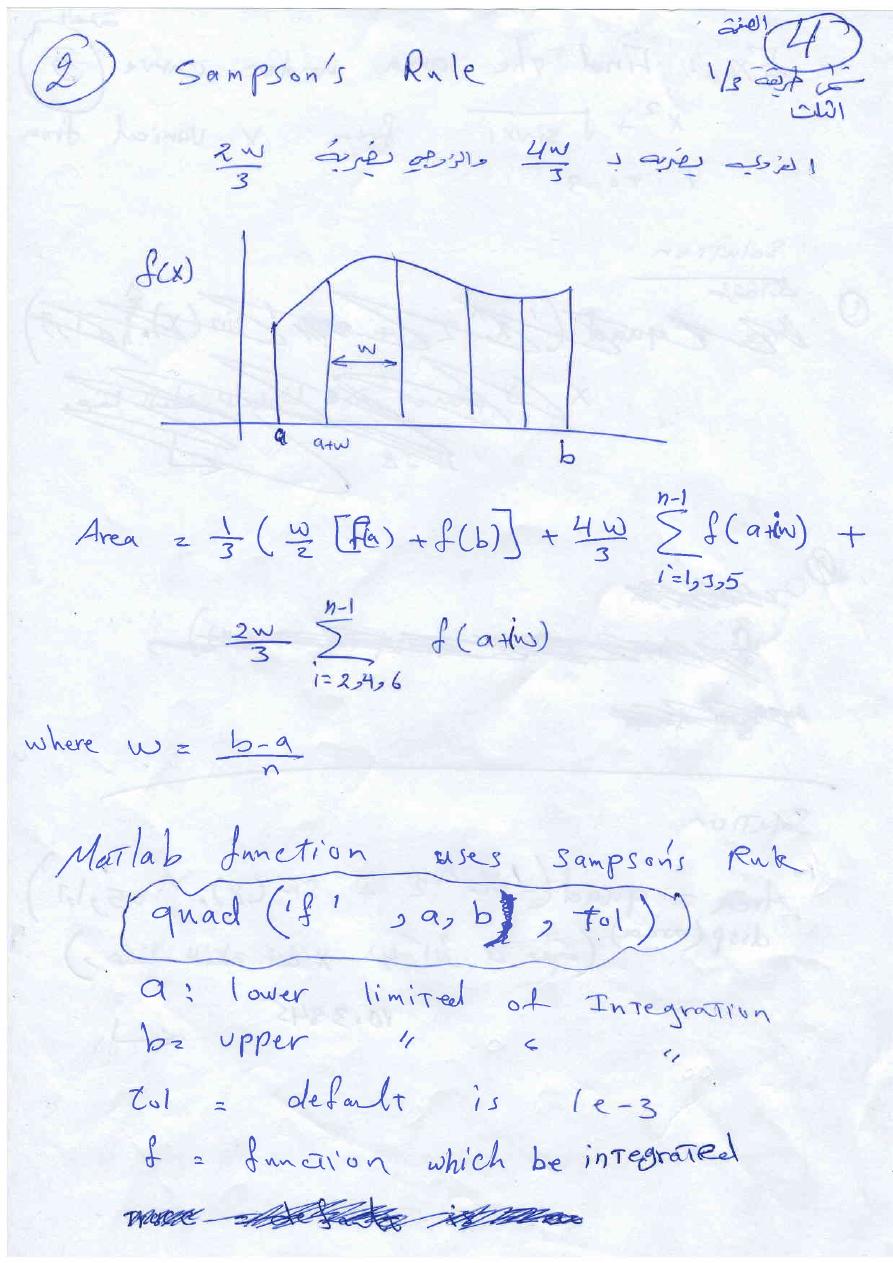 ② Sampson's Rule
الصفحة 4
طريقة 1/3
الثلث
الفردي يضربه بـ 4w/3 والزوجي يضربه 2w/3
f(x)
w
a a+w b
Area = 1/3 ( w/2 [f(a) + f(b)] + 4w/3 n-1 Σ i=1,3,5 f(a+iw) +
2w/3 n-1 Σ i=2,4,6 f(a+iw)
where w = b-a/n
Matlab function uses sampson's Rule.
quad ('f' , a, b , tol)
a : lower limited of Integration
b= upper " " "
tol = default is 1e-3
f = function which be integrated